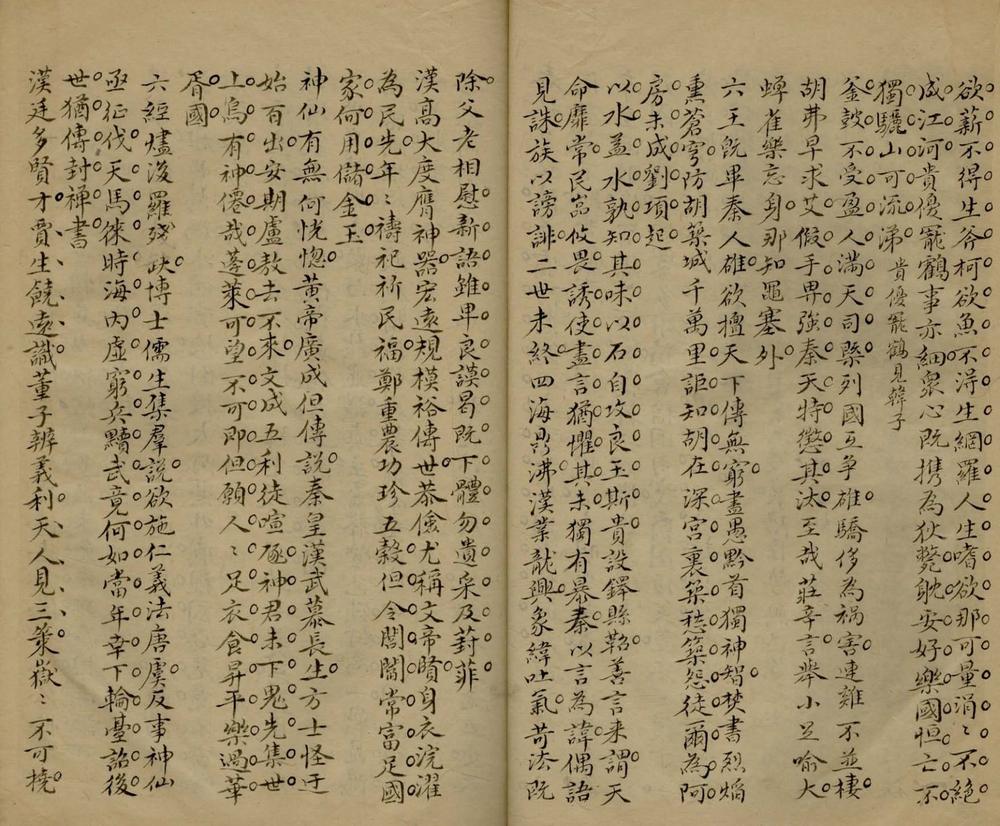 欲薪不得生斧柯欲魚不得生網羅人生嗜欲那可量涓〻不絕
成江河貴優寵鶴事亦細衆心既攜為狄斃耽安好樂國恒亡不
獨驪山可流涕貴優寵鶴見韓子
釜鼓不受盈人滿天司槩列國互爭雄驕侈為禍害連雞不並棲
胡弗早求艾假手畀強秦天特懲其汰至哉莊辛言舉小足喻大
蟬雀樂忘身那知黽塞外
六王既畢秦人雄欲擅天下傳無窮盡愚黔首獨神智焚書烈焰
熏蒼穹防胡築城千萬里詎知胡在深宮裏築愁築怨徒爾為阿
房未成劉項起
以水益水孰知其味以石自攻良玉斯貴設鐸縣鞀善言来謂天
命靡常民嵓攸畏誘使盡言猶懼其未獨有暴秦以言為諱偶語
見誅族以謗誹二世未終四海鼎沸漢業龍興象緯吐氣苛法既
除父老相慰新語雖卑良謨曷既下體勿遺采及葑菲
漢高大度膺神器宏遠規模裕傳世恭儉尤稱文帝賢身衣浣濯
為民先年〻禱祀祈民福鄭重農功珍五穀但令閭閻常富足國
家何用儲金玉
神仙有無何恍惚黃帝廣成但傳說秦皇漢武慕長生方士怪迂
始百出安期盧敖去不來文成五利徒喧豗神君未下鬼先集世
上烏有神僊哉蓬萊可望不可即但願人〻足衣食昇平樂過華
胥國
六經燼後羅殘缺博士儒生集羣說欲施仁義法唐虞反事神仙
亟征伐天馬徠時海內虛窮兵黷武竟何如當年幸下輪臺詔後
世猶傳封禪書
漢廷多賢才賈生饒遠識董子辨義利天人見三策嶽〻不可撓